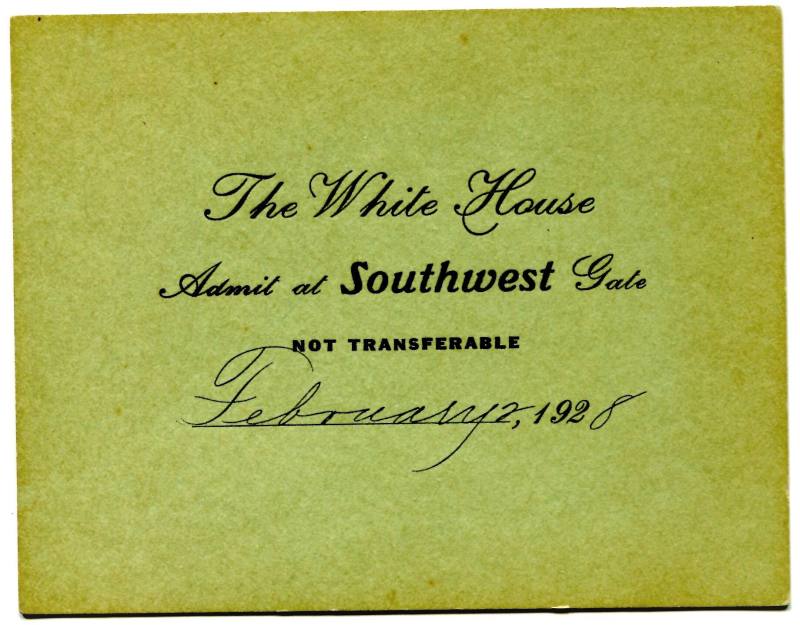 The White House
Admit at Southwest Gate
NOT TRANSFERABLE
February 2, 1928